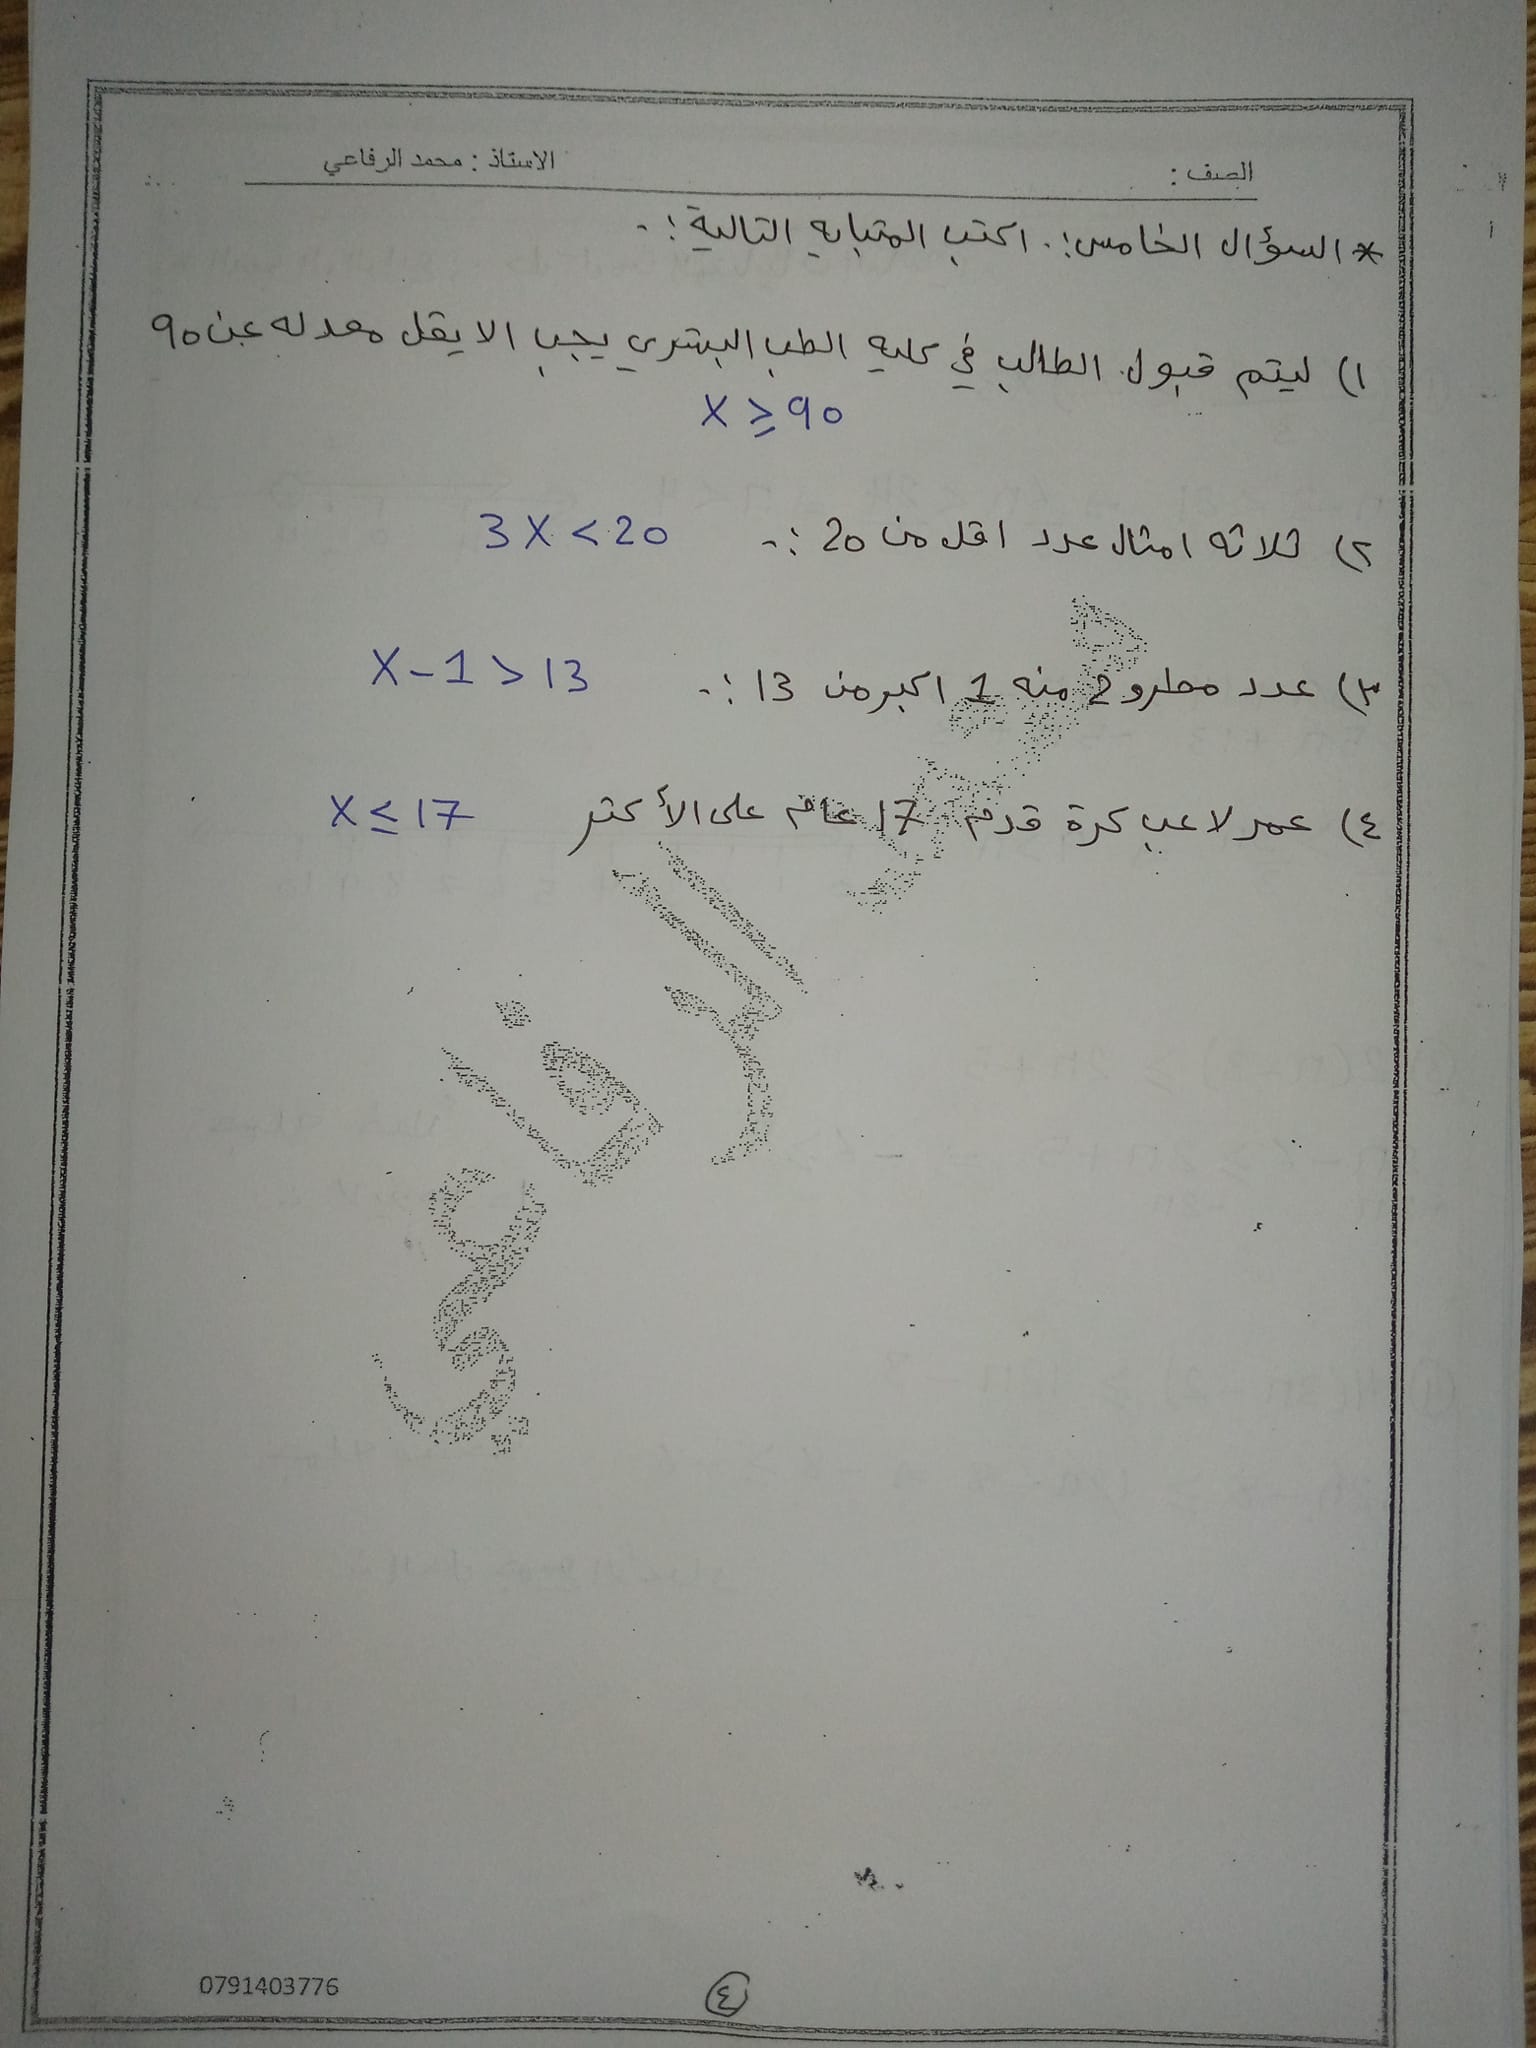 الصف :
الاستاذ : محمد الرفاعي
* السؤال الخامس :. اكتب المتباينه التالية :.
١) ليتم قبول الطالب في كليه الطب البشري يجب الا يقل معدله عن 90
X ≥ 90
٢) ثلاثه امثال عدد اقل من 20 :. 3X < 20
٣) عدد مطروح منه 1 اكبر من 13 :. X - 1 > 13
٤) عمر لاعب كرة قدم 17 عام على الأكثر X ≤ 17
محمد الرفاعي
0791403776
٤